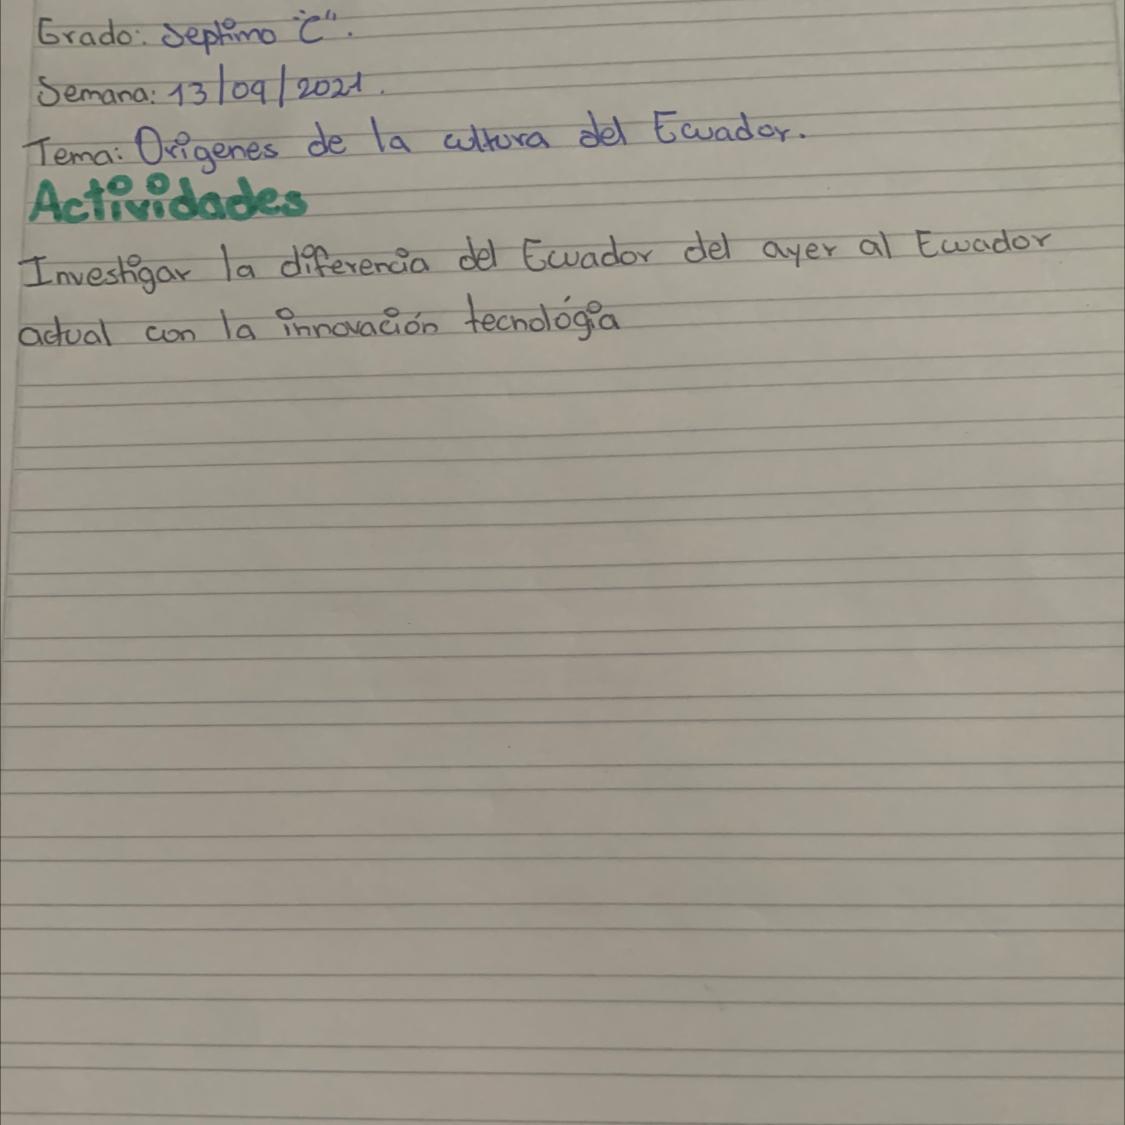 Grado: Septimo "C".
Semana: 13/09/2021.
Tema: Origenes de la cultura del Ecuador.
Actividades
Investigar la diferencia del Ecuador del ayer al Ecuador
actual con la innovación tecnológia